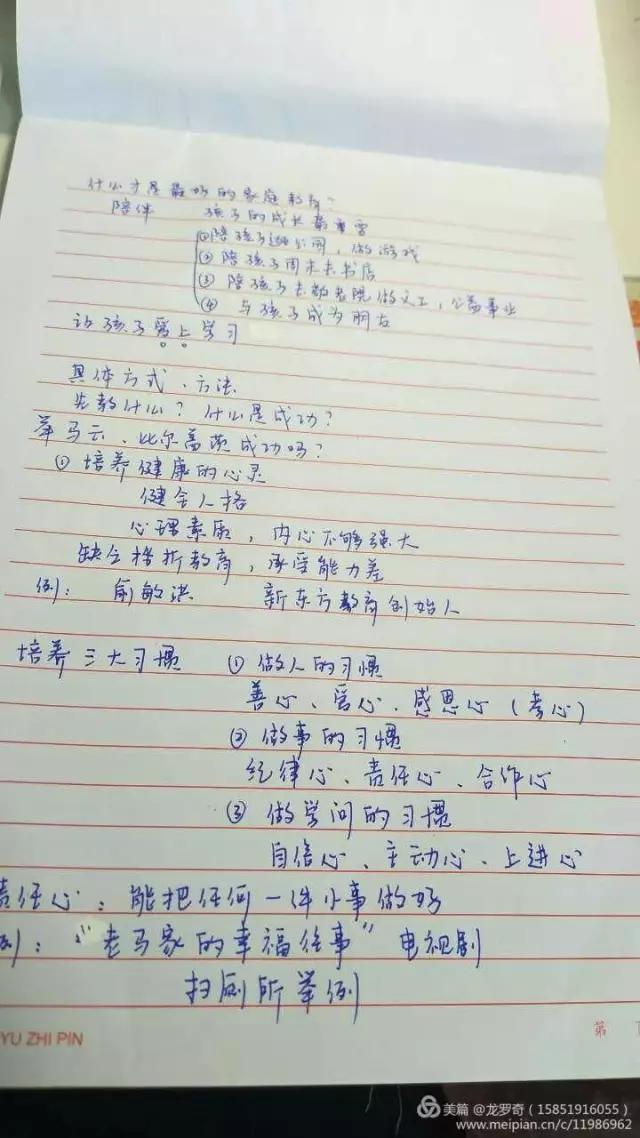 什么才是最好的家庭教育?
陪伴 孩子的成长最重要
①陪孩子逛公园,做游戏
② 陪孩子周末去书店
③ 陪孩子去敬老院做义工,公益事业
④ 与孩子成为朋友
让孩子爱上学习
具体方式、方法
先教什么?什么是成功?
举马云、比尔盖茨成功吗?
① 培养健康的心灵
健全人格
心理素质,内心不够强大
缺乏挫折教育,承受能力差
例: 俞敏洪 新东方教育创始人
培养三大习惯 ① 做人的习惯
善心、爱心、感恩心(孝心)
② 做事的习惯
纪律心、责任心、合作心
③ 做学问的习惯
自信心、主动心、上进心
责任心:能把任何一件小事做好
例:“老马家的幸福往事”电视剧
扫厕所举例
YU ZHI PIN 第
美篇 @龙罗奇(15851916055)
www.meipian.cn/c/11986962